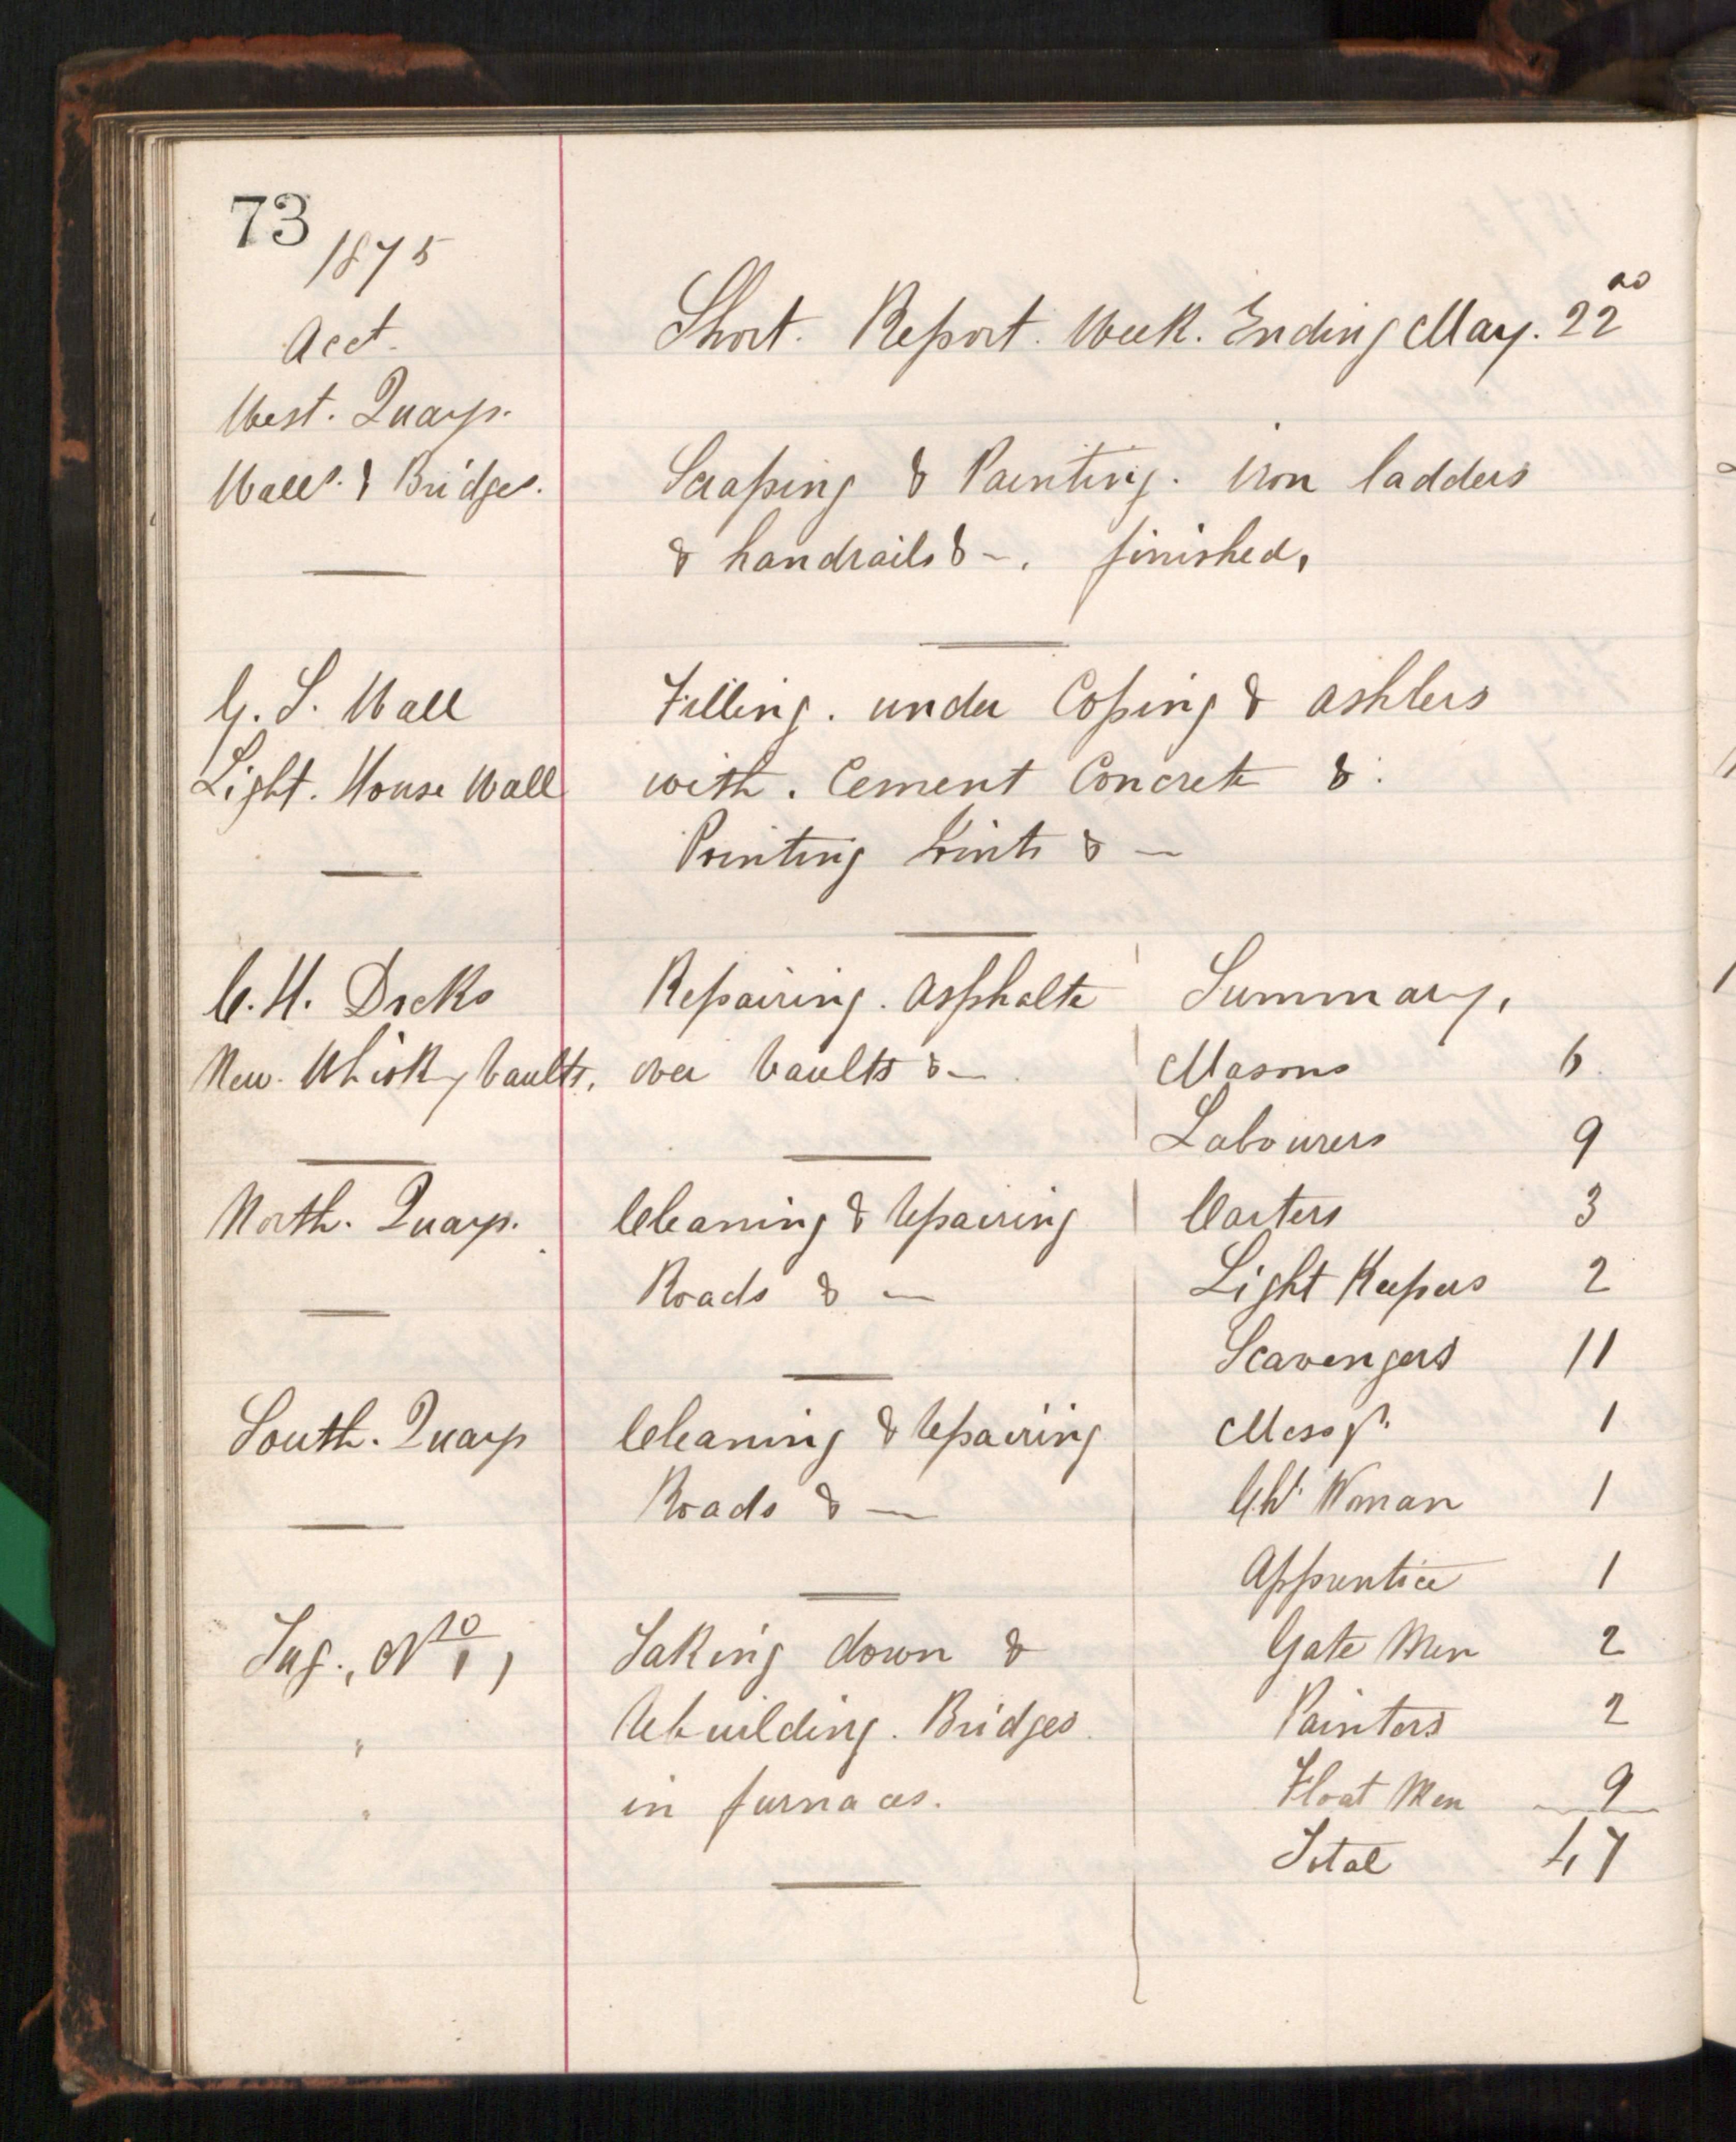 73
1875
Acct.
Short. Report. Week. Ending May. 22nd
West. Quays.
Walls. & Bridges.
Scraping & Painting. iron ladders
& handrails & –. finished,
G. S. Wall
Filling. under Coping & ashlers
Light. House Wall
with. Cement Concrete &.
Pointing joints & —
C. H. Docks
Repairing. Asphalte
New. Whisky Vaults.
over Vaults & —
North. Quays.
Cleaning & Repairing
Roads & —
South. Quays
Cleaning & Repairing
Roads & —
Tug., No 1,
Taking down &
"
Rebuilding. Bridges
"
in furnaces.
Summary,
Masons 6
Labourers 9
Carters 3
Light Keepers 2
Scavengers 11
Messgr. 1
Woman 1
Apprentice 1
Gate Men 2
Painters 2
Float Men 9
Total 47